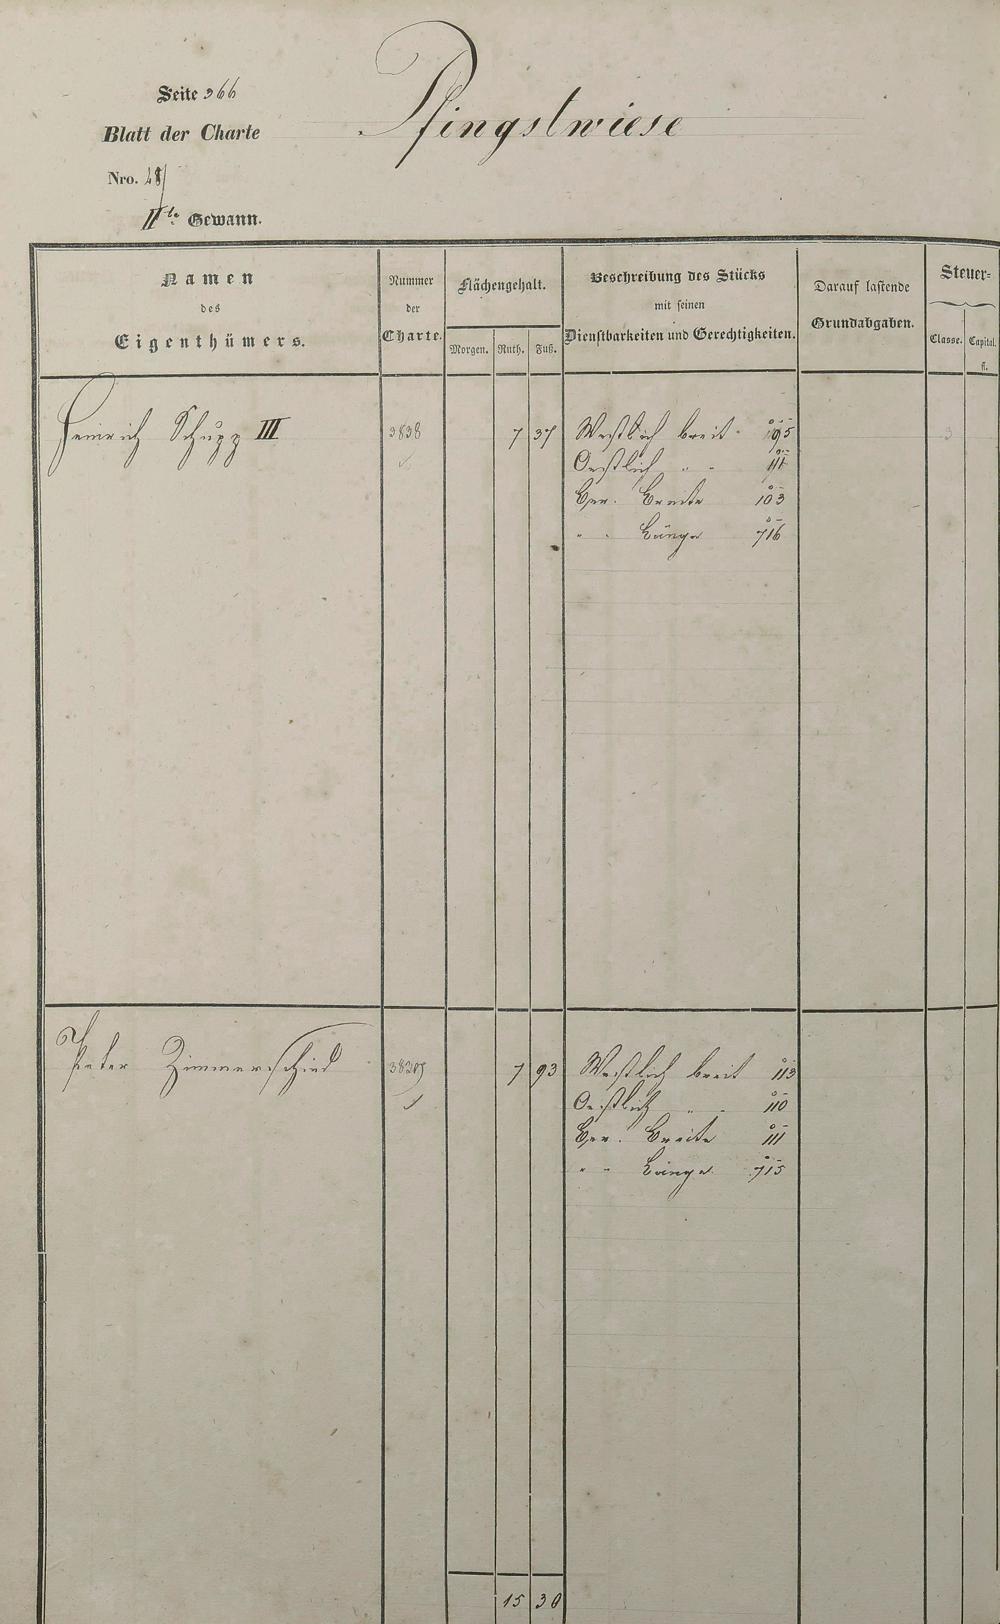 Seite 366
Pfingstwiese
Blatt der Charte
Nro. 48
IIte Gewann.
Namen des Eigenthümers.
Nummer der Charte.
Flächengehalt.
Morgen. Ruth. Fuß.
Beschreibung des Stücks mit seinen Dienstbarkeiten und Gerechtigkeiten.
Darauf lastende Grundabgaben.
Steuer-
Classe. Capital. fl.
Heinrich Schupp III 3838 7 37 Westlich breit 95 3
Oestlich " " 111
Ger. Breite 103
" " Länge 716
Peter Zimmerschied 3839 7 93 Westlich breit 113
Oestlich " " 110
Ger. Breite 111
" " Länge 715
15 30